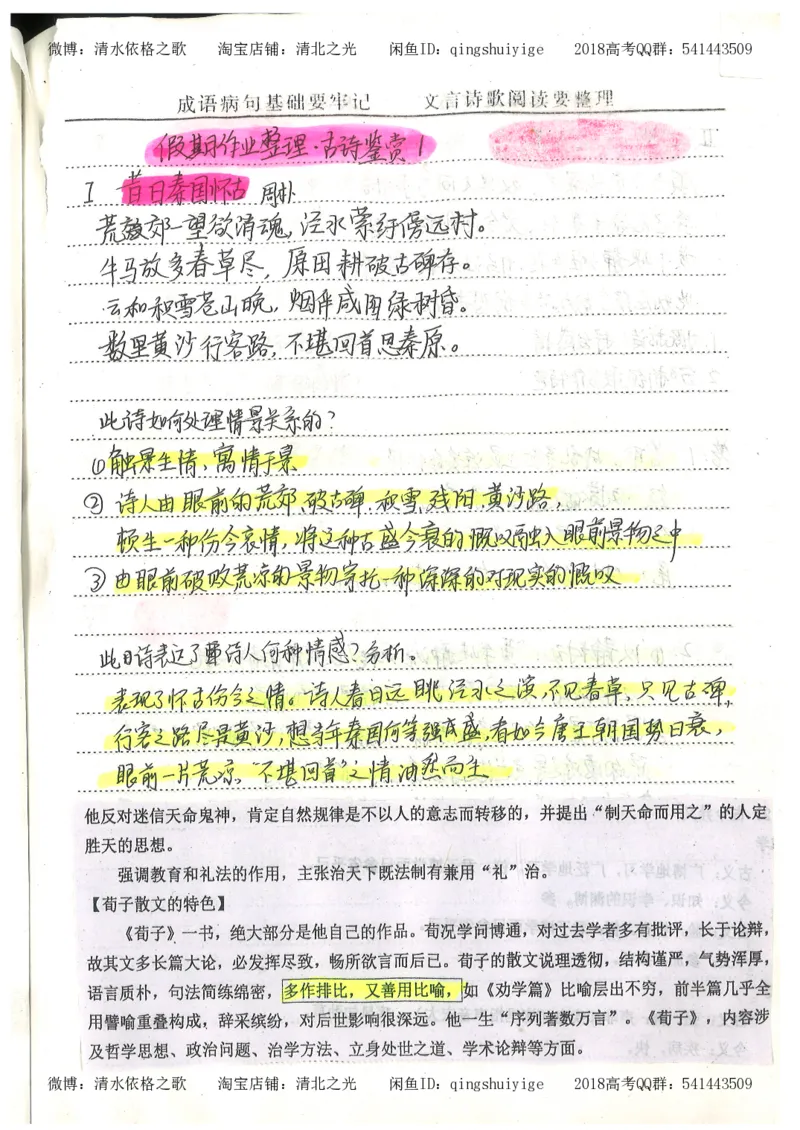 微博：清水依格之歌　淘宝店铺：清北之光　闲鱼ID：qingshuiyige　2018高考QQ群：541443509
成语病句基础要牢记　文言诗歌阅读要整理
假期作业整理·古诗鉴赏1
I 昔日秦国怀古 周朴
荒郊一望欲消魂，泾水萦纡傍远村。
牛马放多春草尽，原田耕破古碑存。
云和积雪苍山晚，烟伴成阴绿树昏。
数里黄沙行客路，不堪回首思秦原。
此诗如何处理情景关系的？
①触景生情，寓情于景
②诗人由眼前的荒郊、破古碑、积雪、残阳、黄沙路，
顿生一种伤今哀情，将这种古盛今衰的慨叹融入眼前景物之中
③由眼前破败荒凉的景物寄托一种深深的对现实的慨叹
此诗表达了诗人何种情感？分析。
表现了怀古伤今之情。诗人春日远眺泾水之滨，不见春草，只见古碑，
行客之路尽是黄沙，想当年秦国何等强盛，看如今唐王朝国势日衰，
眼前一片荒凉，“不堪回首”之情油然而生
他反对迷信天命鬼神，肯定自然规律是不以人的意志而转移的，并提出“制天命而用之”的人定
胜天的思想。
强调教育和礼法的作用，主张治天下既法制有兼用“礼”治。
【荀子散文的特色】
《荀子》一书，绝大部分是他自己的作品。荀况学问博通，对过去学者多有批评，长于论辩，
故其文多长篇大论，必发挥尽致，畅所欲言而后已。荀子的散文说理透彻，结构谨严，气势浑厚，
语言质朴，句法简练绵密，多作排比，又善用比喻，如《劝学篇》比喻层出不穷，前半篇几乎全
用譬喻重叠构成，辞采缤纷，对后世影响很深远。他一生“序列著数万言”。《荀子》，内容涉
及哲学思想、政治问题、治学方法、立身处世之道、学术论辩等方面。
微博：清水依格之歌　淘宝店铺：清北之光　闲鱼ID：qingshuiyige　2018高考QQ群：541443509